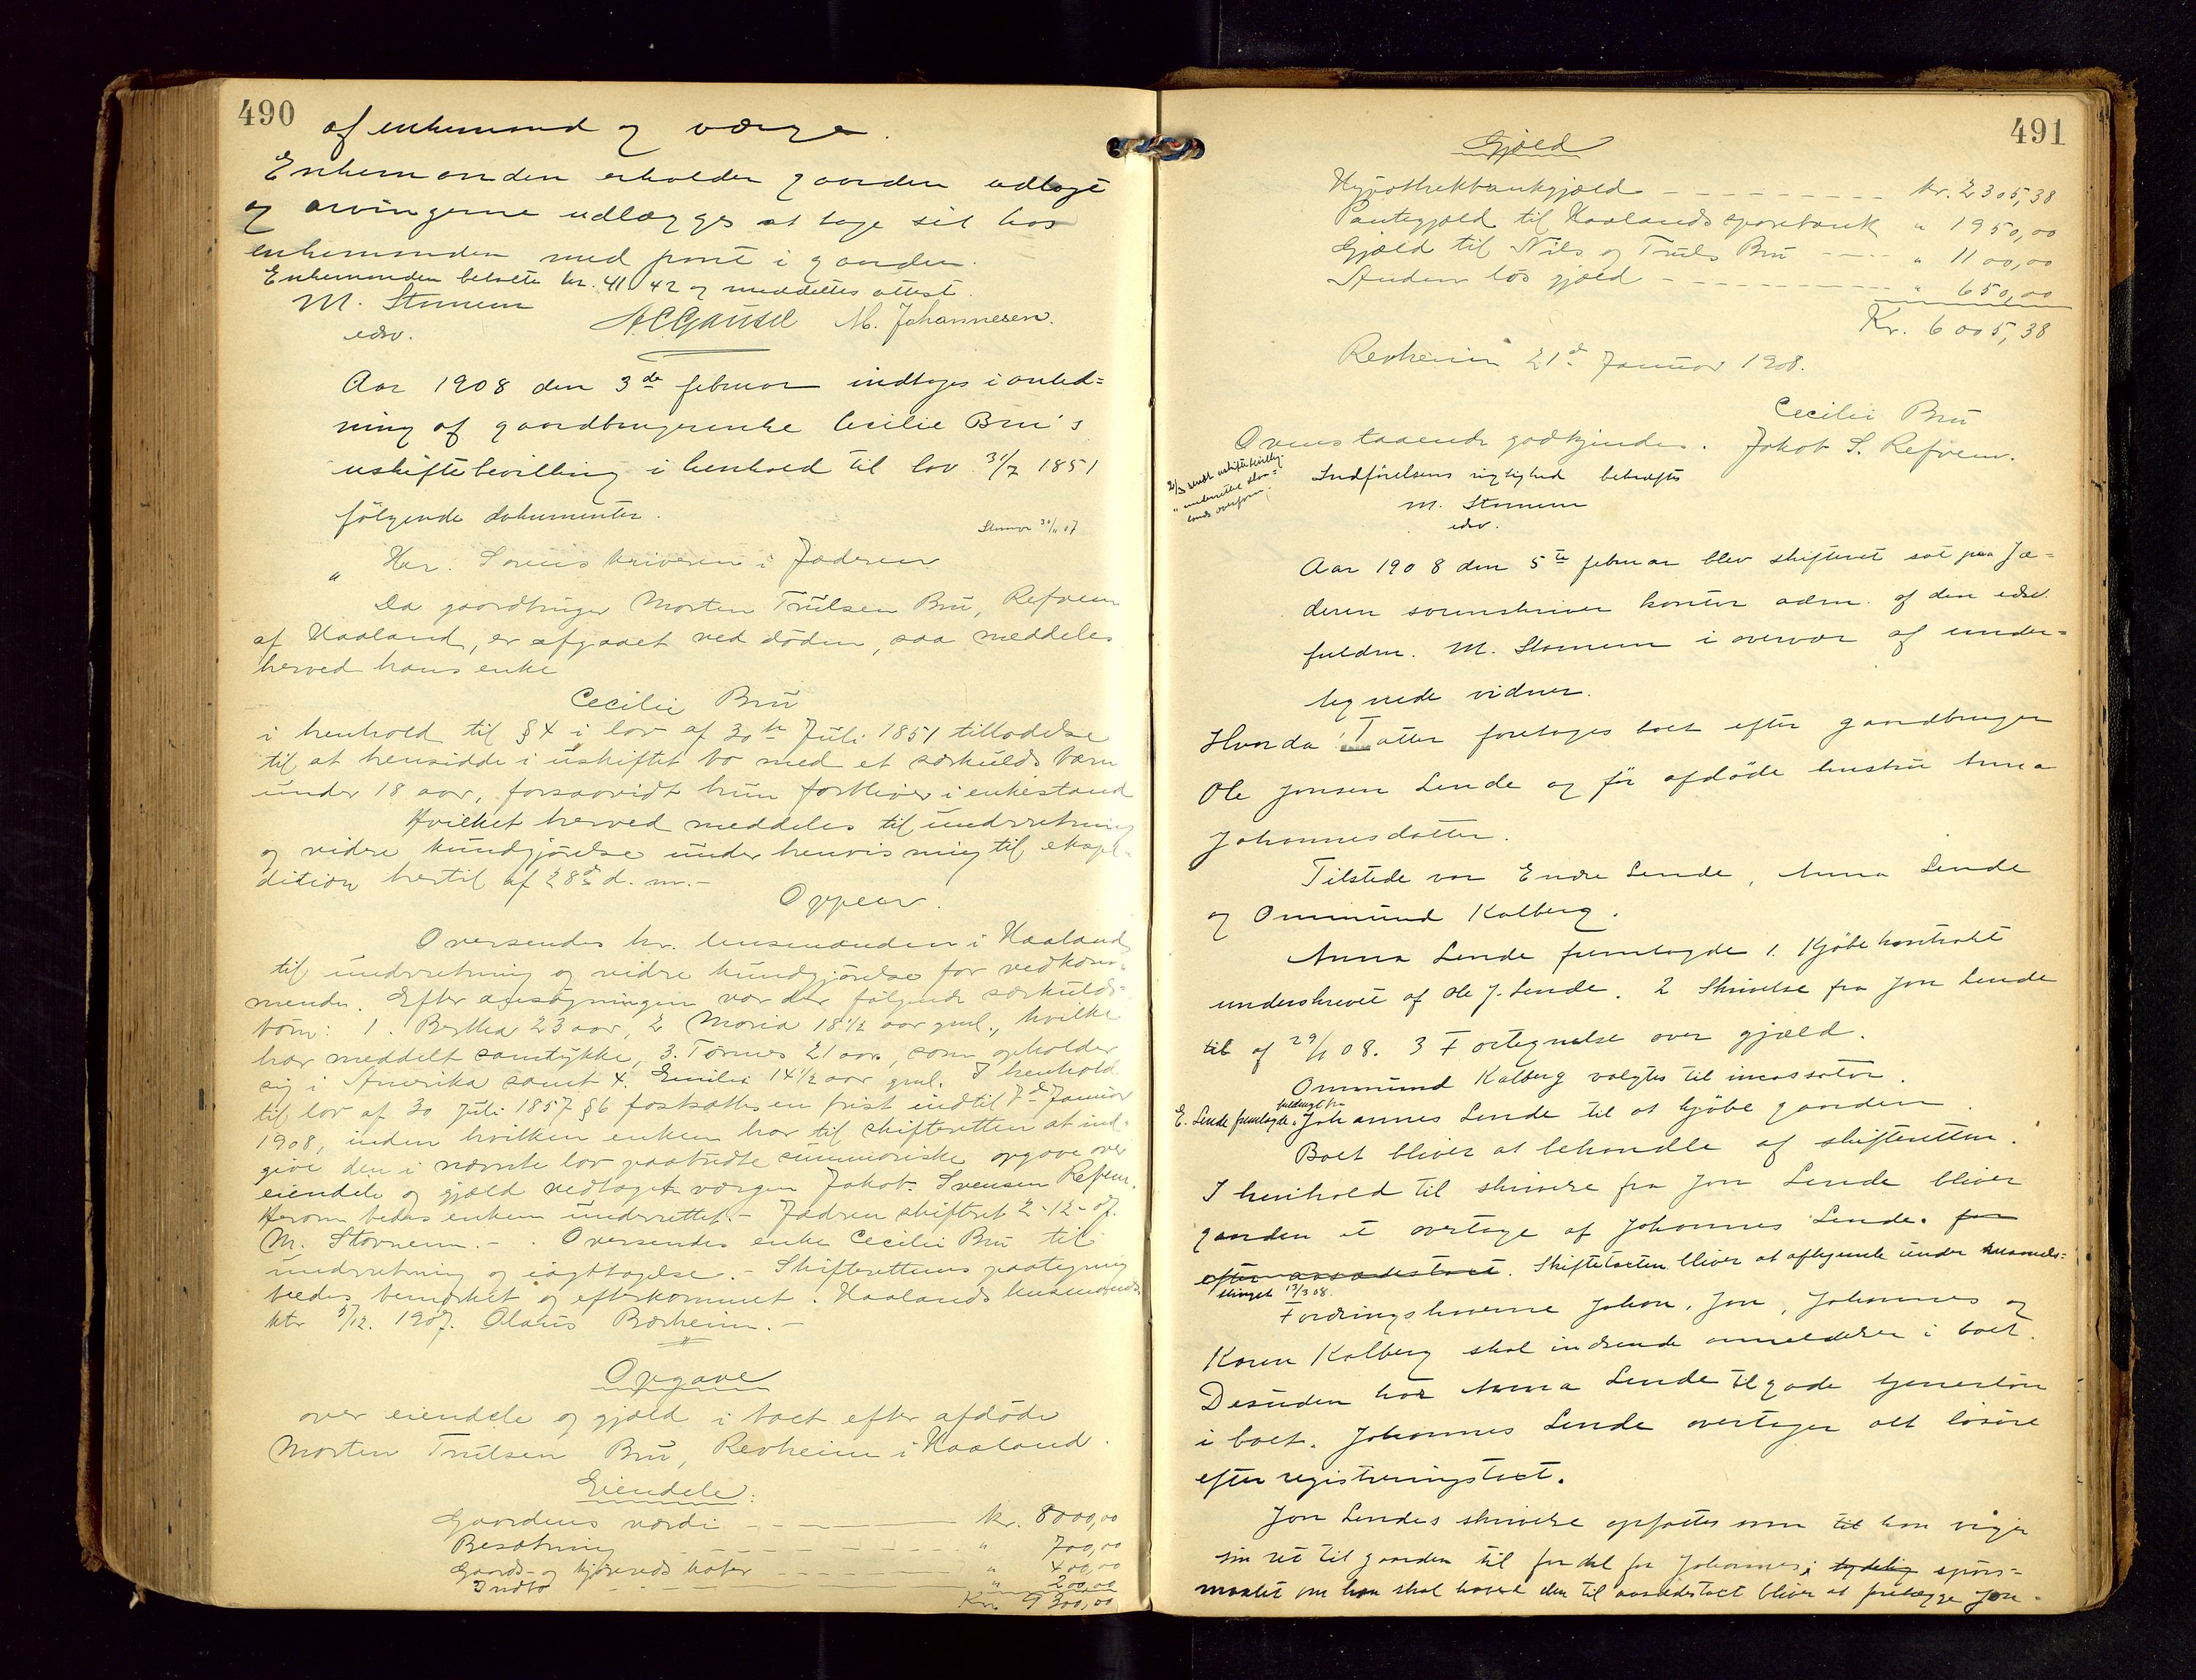 490
af enkemand og værge.
Enkemanden erholder gaarden udlagt
og arvingerne udlægges at tage sit hos
enkemanden med pant i gaarden.
Enkemanden betalte kr. 41.42 og meddeltes attest.
M. Stornem A C Gausel M. Johannesen.
edsv.
Aar 1908 den 3de februar indtoges i anled=
ning af gaardbrugerenke Cecilie Bru's
uskiftebevilling i henhold til lov 31/7 1851
følgende dokumenter.
Stavanger 30/11 07
" Hr. Sorenskriveren i Jæderen
Da gaardbruger Morten Trulsen Bru, Refvem
af Haaland, er afgaaet ved døden, saa meddeles
herved hans enke
Cecilie Bru
i henhold til § 4 i lov af 30te Juli 1851 tilladelse
til at hensidde i uskiftet bo med et særkulds barn
under 18 aar, forsaavidt hun forbliver i enkestand
Hvilket herved meddeles til underretning
og videre kundgjørelse under henvisning til ekspe=
dition hertil af 28de d. m.-
Oppear.
Oversendes hr. lensmanden i Haaland
til underretning og vidre kundgjørelse for vedkom=
mende. Efter ansøgningen var der følgende særkulds=
børn: 1. Bertha 23 aar, 2 Maria 18 1/2 aar gml., hvilke
har meddelt samtykke, 3. Tønnes 21 aar, som opholder
sig i Amerika samt 4. Emilie 14 1/2 aar gml. I henhold
til lov af 30 Juli 1857 § 6 fastsættes en frist indtil 7de Januar
1908, inden hvilken enken har til skifteretten at ind=
give den i nævnte lov paabudte summariske opgave over
eiendele og gjæld vedtaget værgen Jakob Svensen Refvem.
Herom bedes enken underrettet.- Jædren skifteret 2-12-07.
M. Stornem.- . Oversendes enke Cecilie Bru til
underretning og iagttagelse.- Skifterettens paategning
bedes bemærket og efterkommet. Haalands lensmands
ktr 5/12. 1907. Olaus Barheim.-
Opgave
over eiendele og gjæld i boet efter afdøde
Morten Trulsen Bru, Revheim i Haaland.
Eiendele:
Gaardens værdi kr. 8000,00
Besætning " 700,00
Gaards- og kjøreredskaber " 400,00
Indbo " 200,00
Kr. 9300,00
491
Gjæld
Hypothekbankgjæld kr. 2305,38
Pantegjæld til Haalands sparebank " 1950,00
Gjæld til Nils og Truls Bru " 1100,00
Anden løs gjæld " 650,00
Kr. 6005,38
Revheim 21de Januar 1908.
Cecilie Bru
Ovenstaaende godkjendes. Jakob S. Refvem.
Indførelsens rigtighed bekræftes
M. Stornem
edsv.
Aar 1908 den 5te februar blev skifteret sat paa Jæ=
deren sorenskriver kontor adm. af den edsv.
fuldm. M. Stornem i overvær af under=
tegnede vidner.
Hvorda: I atter foretoges boet efter gaardbruger
Ole Jonsen Lende og før afdøde hustru Anna
Johannesdatter.
Tilstede var Endre Lende, Anna Lende
og Ommund Kalberg.
Anna Lende fremlagde 1. Kjøbekontrakt
underskrevet af Ole J. Lende. 2 Skrivelse fra Jon Lende
til af 29/1 08. 3 Fortegnelse over gjæld.
Ommund Kalberg valgtes til incassator.
E. Lende fremlagde fuldmagt fra Johannes Lende til at kjøbe gaarden
Boet bliver at behandle af skifteretten.
I henhold til skrivelse fra Jon Lende bliver
gaarden et overtage af Johannes Lende. for
efter aasædestaxt. Skiftetaxten bliver at afhjemle under sommer=
thinget 13/3 08.
Fordringshaverne Johan, Jon, Johannes og
Karen Kalberg skal indsende anmeldelser i boet.
Desuden har Anna Lende tilgode tjenerløn
i boet. Johannes Lende overtager alt løsøre
efter registreringstaxt.
Jon Lendes skrivelse opfattes som til han viger
sin ret til gaarden til fordel for Johannes; tydelig spørs=
maalet om han skal have den til aasædestaxt bliver at forelægge Jon.